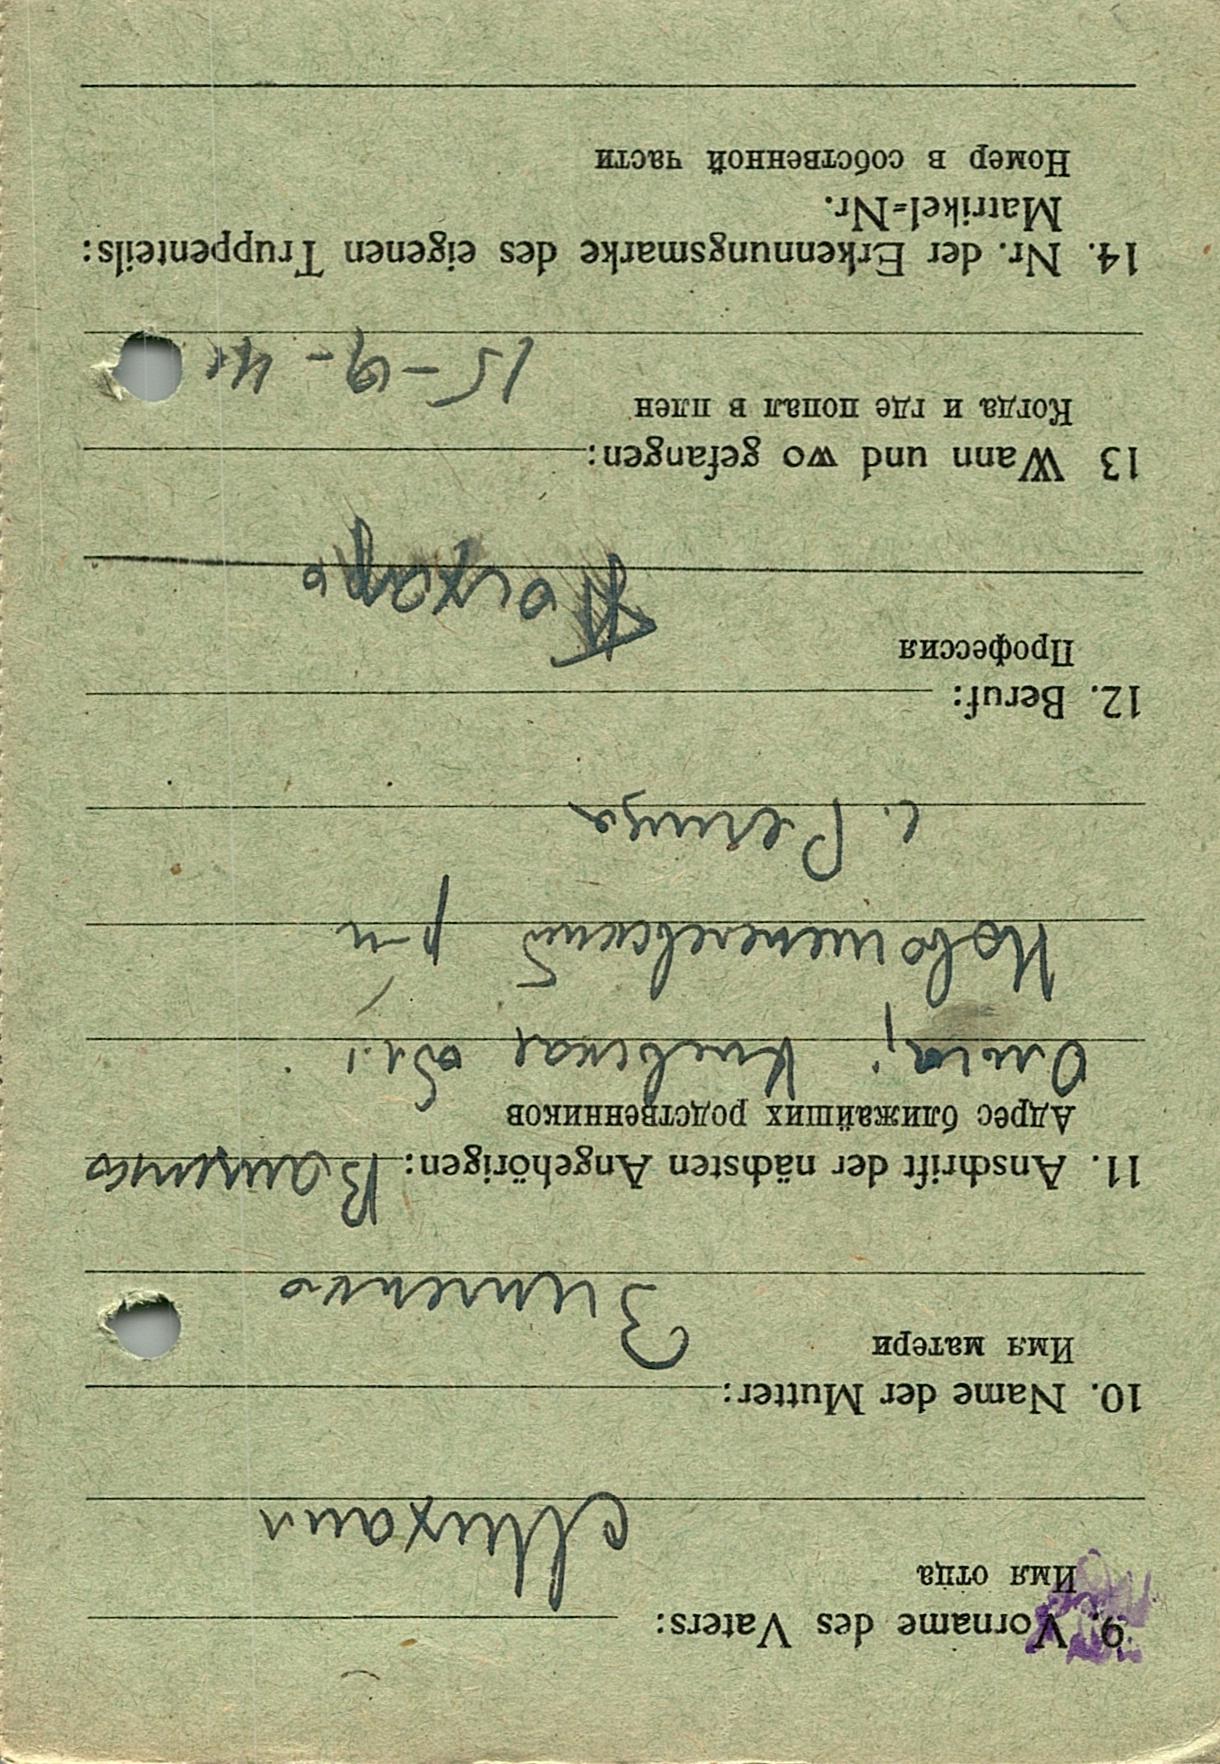 9. Vorname des Vaters:
Имя отца
Михаил
10. Name der Mutter:
Имя матери
Зинченко
11. Anschrift der nächsten Angehörigen:
Адрес ближайших родственников
Ольга; Киевская обл.
Новошепелевский р-н
с.
12. Beruf:
Профессия
13 Wann und wo gefangen:
Когда и где попал в плен
15-9-41
14. Nr. der Erkennungsmarke des eigenen Truppenteils:
Matrikel=Nr.
Номер в собственной части